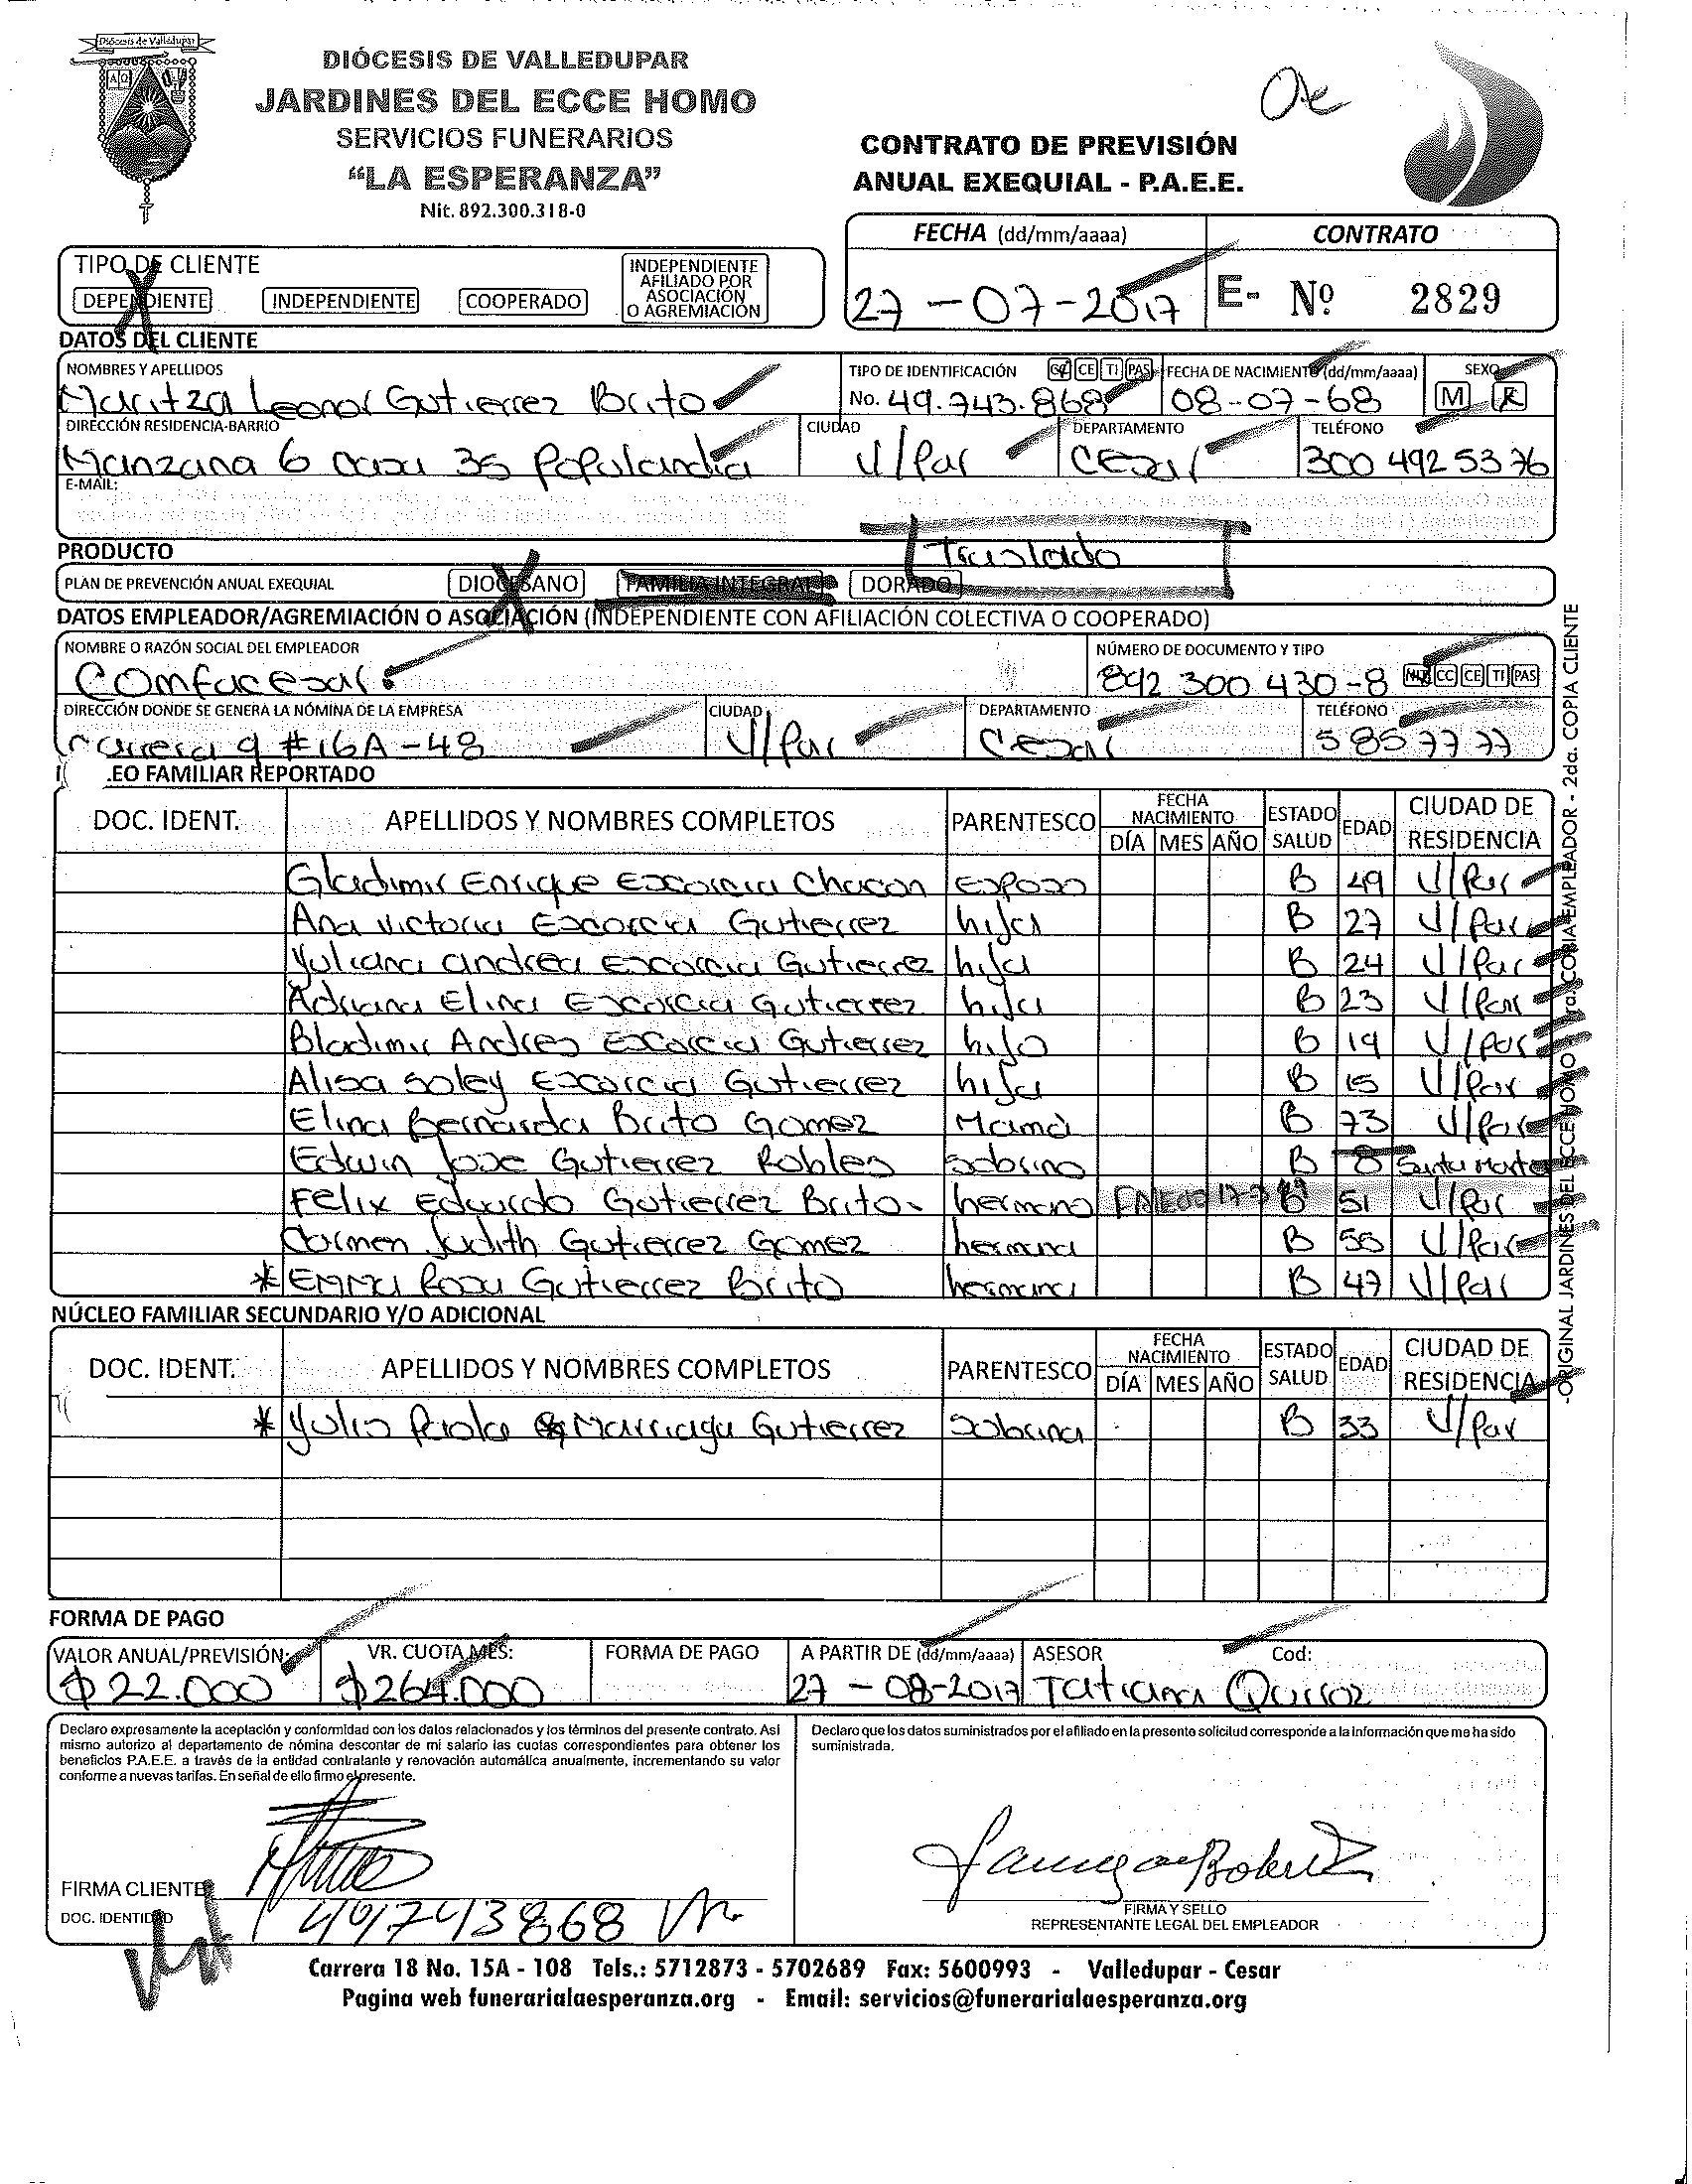 Diócesis de Valledupar
DIÓCESIS DE VALLEDUPAR
JARDINES DEL ECCE HOMO
SERVICIOS FUNERARIOS
“LA ESPERANZA”
Nit. 892.300.318-0
CONTRATO DE PREVISIÓN
ANUAL EXEQUIAL - P.A.E.E.
FECHA (dd/mm/aaaa) CONTRATO
27-07-2017 E- Nº 2829
TIPO DE CLIENTE
DEPENDIENTE INDEPENDIENTE COOPERADO INDEPENDIENTE AFILIADO POR ASOCIACIÓN O AGREMIACIÓN
DATOS DEL CLIENTE
NOMBRES Y APELLIDOS TIPO DE IDENTIFICACIÓN CC CE TI PAS FECHA DE NACIMIENTO (dd/mm/aaaa) SEXO
Maritza Leonor Gutierrez Brito No. 49.743.868 08-07-68 M F
DIRECCIÓN RESIDENCIA-BARRIO CIUDAD DEPARTAMENTO TELÉFONO
Manzana 6 casa 35 Populandia V/Par Cesar 300 492 5376
E-MAIL:
Traslado
PRODUCTO
PLAN DE PREVENCIÓN ANUAL EXEQUIAL DIOCESANO FAMILIA INTEGRAL DORADO
DATOS EMPLEADOR/AGREMIACIÓN O ASOCIACIÓN (INDEPENDIENTE CON AFILIACIÓN COLECTIVA O COOPERADO)
NOMBRE O RAZÓN SOCIAL DEL EMPLEADOR NÚMERO DE DOCUMENTO Y TIPO
Comfacesar 892 300 430-8 NIT CC CE TI PAS
DIRECCIÓN DONDE SE GENERA LA NÓMINA DE LA EMPRESA CIUDAD DEPARTAMENTO TELÉFONO
Carrera 9 #16A-48 V/Par Cesar 5857777
LEO FAMILIAR REPORTADO
DOC. IDENT. APELLIDOS Y NOMBRES COMPLETOS PARENTESCO FECHA NACIMIENTO DÍA MES AÑO ESTADO SALUD EDAD CIUDAD DE RESIDENCIA
Gladimir Enrique Escorcia Chacon Esposo B 49 V/Par
Ana Victoria Escorcia Gutierrez hija B 27 V/Par
Yuliana andrea Escorcia Gutierrez hija B 24 V/Par
Adriana Elina Escorcia Gutierrez hija B 23 V/Par
Bladimir Andres Escorcia Gutierrez hijo B 19 V/Par
Alisa Soley Escorcia Gutierrez hija B 15 V/Par
Elina Bernarda Brito Gomez Mamá B 73 V/Par
Edwin Jose Gutierrez Robles sobrino B 8 Santa Marta
Felix Eduardo Gutierrez Brito hermano B 51 V/Par
Carmen Judith Gutierrez Gomez hermana B 50 V/Par
*Emma Rosa Gutierrez Brito hermana B 47 V/Par
NÚCLEO FAMILIAR SECUNDARIO Y/O ADICIONAL
DOC. IDENT. APELLIDOS Y NOMBRES COMPLETOS PARENTESCO FECHA NACIMIENTO DÍA MES AÑO ESTADO SALUD EDAD CIUDAD DE RESIDENCIA
*Yulis Paola Marriaga Gutierrez Sobrina B 33 V/Par
-ORIGINAL JARDINES DEL ECCE HOMO - 1ra. COPIA EMPLEADOR - 2da. COPIA CLIENTE
FORMA DE PAGO
VALOR ANUAL/PREVISIÓN: VR. CUOTA MES: FORMA DE PAGO A PARTIR DE (dd/mm/aaaa) ASESOR Cod:
$22.000 $264.000 27-08-2017 Tatiana Quiroz
Declaro expresamente la aceptación y conformidad con los datos relacionados y los términos del presente contrato. Así
mismo autorizo al departamento de nómina descontar de mi salario las cuotas correspondientes para obtener los
beneficios P.A.E.E. a través de la entidad contratante y renovación automática anualmente, incrementando su valor
conforme a nuevas tarifas. En señal de ello firmo el presente.
Declaro que los datos suministrados por el afiliado en la presente solicitud corresponde a la información que me ha sido
suministrada.
FIRMA CLIENTE
DOC. IDENTIDAD 49743868
FIRMA Y SELLO
REPRESENTANTE LEGAL DEL EMPLEADOR
Carrera 18 No. 15A - 108 Tels.: 5712873 - 5702689 Fax: 5600993 - Valledupar - Cesar
Pagina web funerarialaesperanza.org - Email: servicios@funerarialaesperanza.org